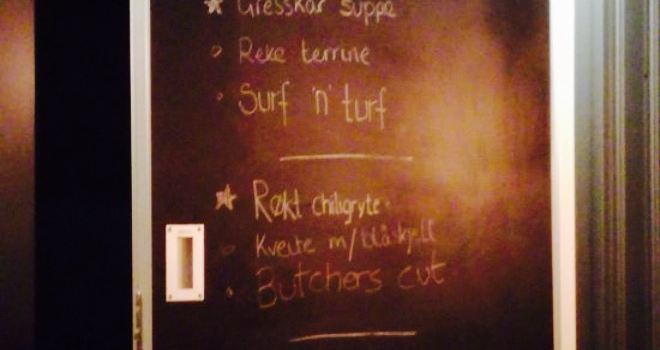 Gresskar suppe
Reke terrine
Surf 'n' turf
Røkt chiligryte.
Kveite m/blåskjell
Butchers cut